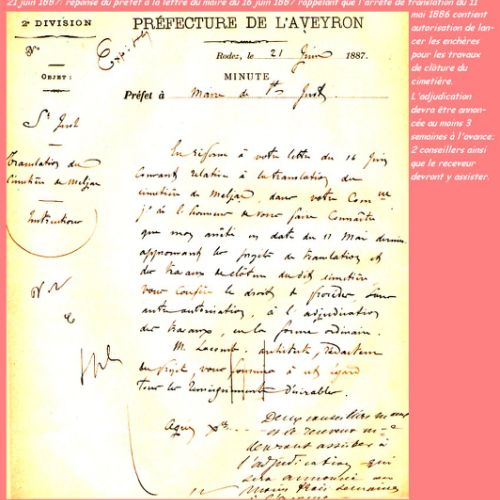 21 juin 1887: réponse du préfet à la lettre du maire du 16 juin 1887 rappelant que l'arrêté de translation du 11
mai 1886 contient
autorisation de lan-
cer les enchères
pour les travaux
de clôture du
cimetière.
L'adjudication
devra être annon-
cée au moins 3
semaines à l'avance;
2 conseillers ainsi
que le receveur
devront y assister.
2e DIVISION
PRÉFECTURE DE L'AVEYRON
No
Expédié
Rodez, le 21 Juin 1887.
OBJET:
MINUTE
Préfet à Maire de St Just
St Just
Translation du
cimetière de Meljac
Instructions
En réponse à votre lettre du 16 Juin
Courant relative à la translation du
cimetière de Meljac, dans votre Comne
j'ai l'honneur de vous faire Connaître
que mon arrêté en date du 11 Mai dernier
approuvant le projet de translation et
des travaux de clôture du dit cimetière
vous confère le droit de procéder, sans
autre autorisation, à l'adjudication
des travaux, en la forme ordinaire.
M. Lacombe, architecte, rédacteur
du projet, vous fournira à cet égard
tous les renseignements désirables.
Agréez
Deux conseillers
et le receveur
devront assister à
l'adjudication qui
sera annoncée au
moins trois semaines
à l'avance